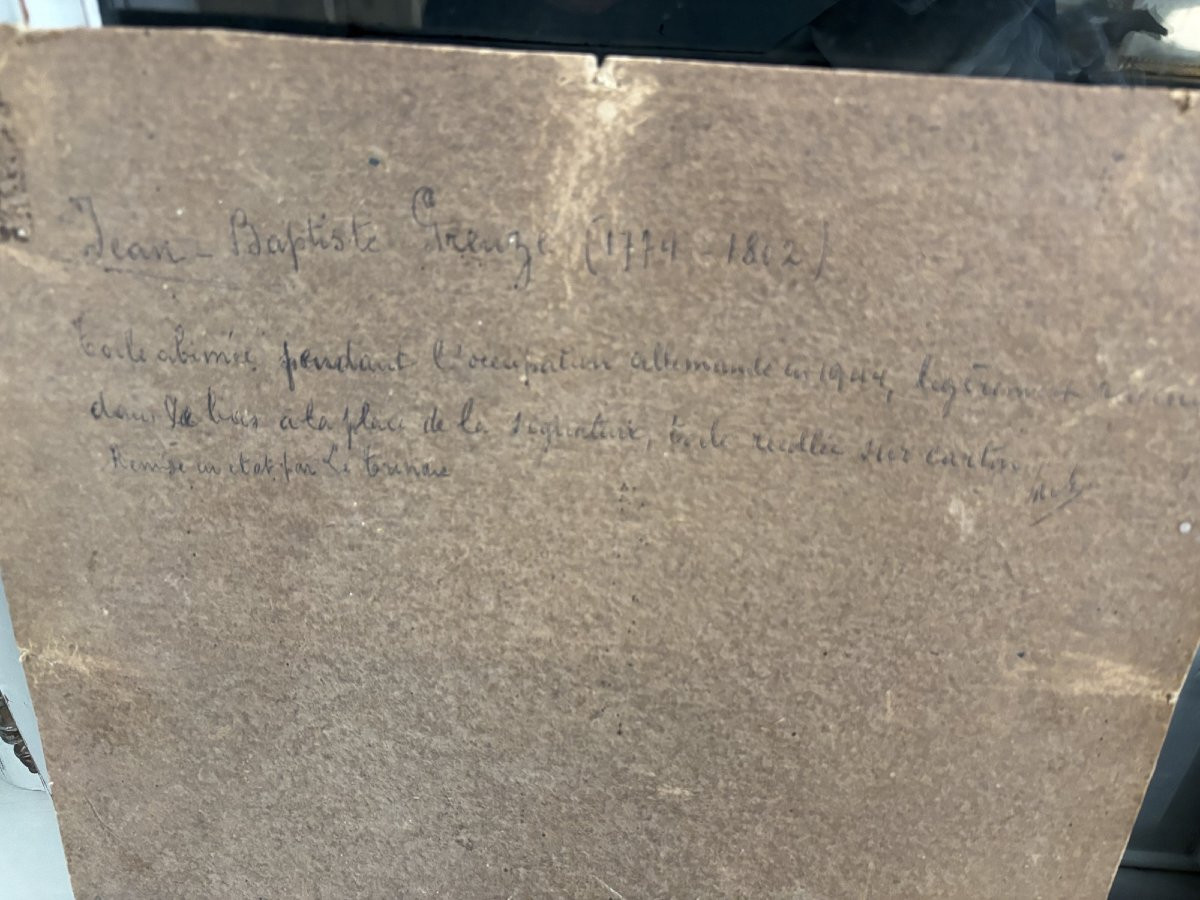 Jean - Baptiste Greuze (1774 - 1802)
Toile abimée pendant l'occupation allemande en 1944, légèrement
dans le bas à la place de la signature, toile recollée sur carton
Remise en état par Le